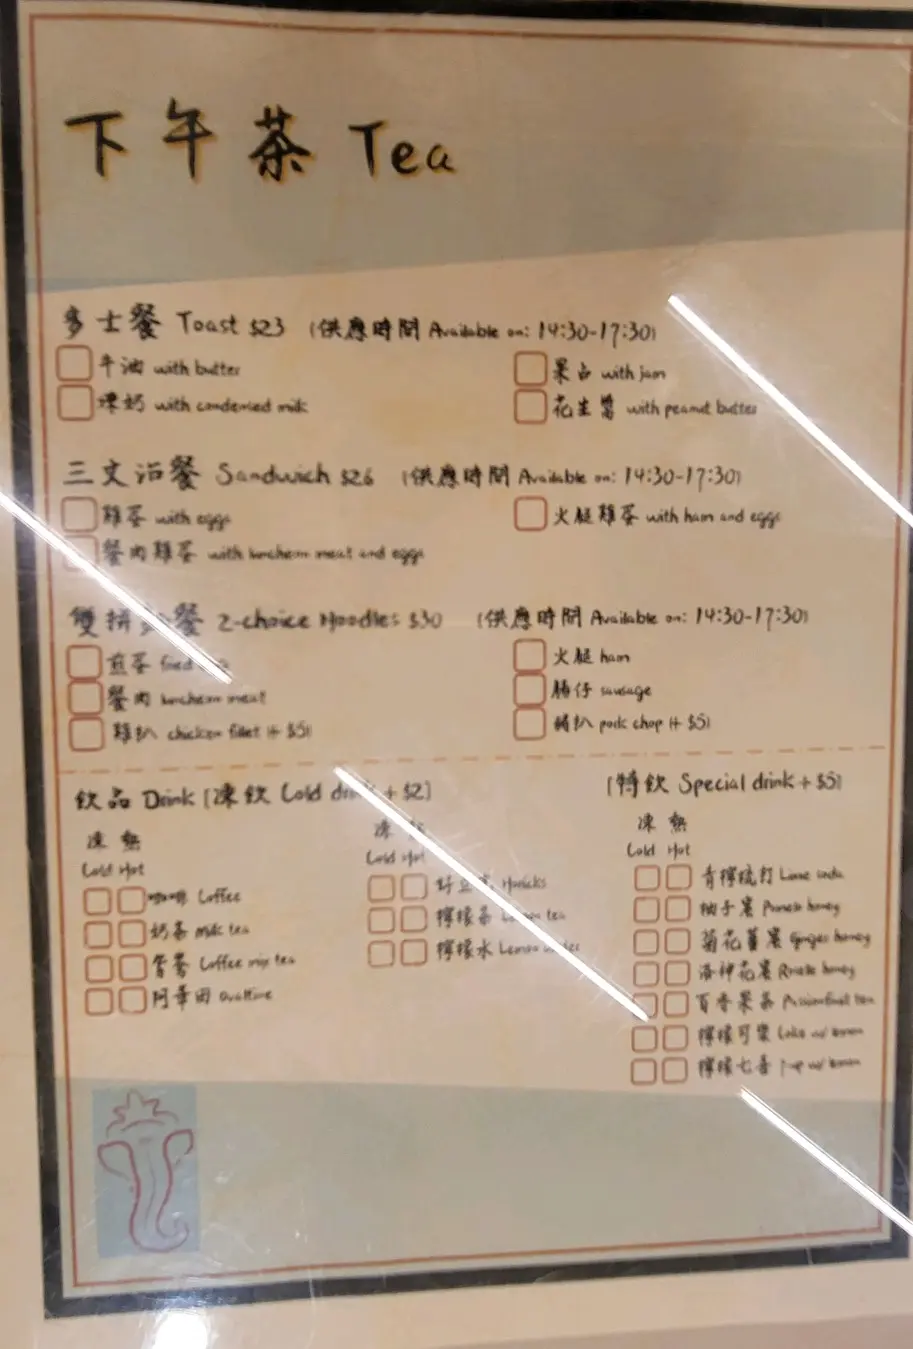 下午茶 Tea
多士餐 Toast $23 (供應時間 Available on: 14:30-17:30)
牛油 with butter
果占 with jam
煉奶 with condensed milk
花生醬 with peanut butter
三文治餐 Sandwich $26 (供應時間 Available on: 14:30-17:30)
雞蛋 with eggs
火腿雞蛋 with ham and eggs
餐肉雞蛋 with luncheon meat and eggs
雙拼 餐 2-choice Noodles $30 (供應時間 Available on: 14:30-17:30)
煎蛋 fried
火腿 ham
餐肉 luncheon meat
腸仔 sausage
雞扒 chicken fillet (+ $5)
豬扒 pork chop (+ $5)
飲品 Drink (凍飲 Cold drink + $2)
凍 熱
Cold Hot
咖啡 Coffee
奶茶 Milk tea
鴛鴦 Coffee mix tea
阿華田 Ovaltine
凍 熱
Cold Hot
好立克 Horlicks
檸檬茶 Lemon tea
檸檬水 Lemon water
(特飲 Special drink + $5)
凍 熱
Cold Hot
青檸梳打 Lime soda
柚子蜜 Pomelo honey
菊花薑蜜 Ginger honey
洛神花蜜 Roselle honey
百香果茶 Passionfruit tea
檸檬可樂 Coke w/ lemon
檸檬七喜 7-up w/ lemon